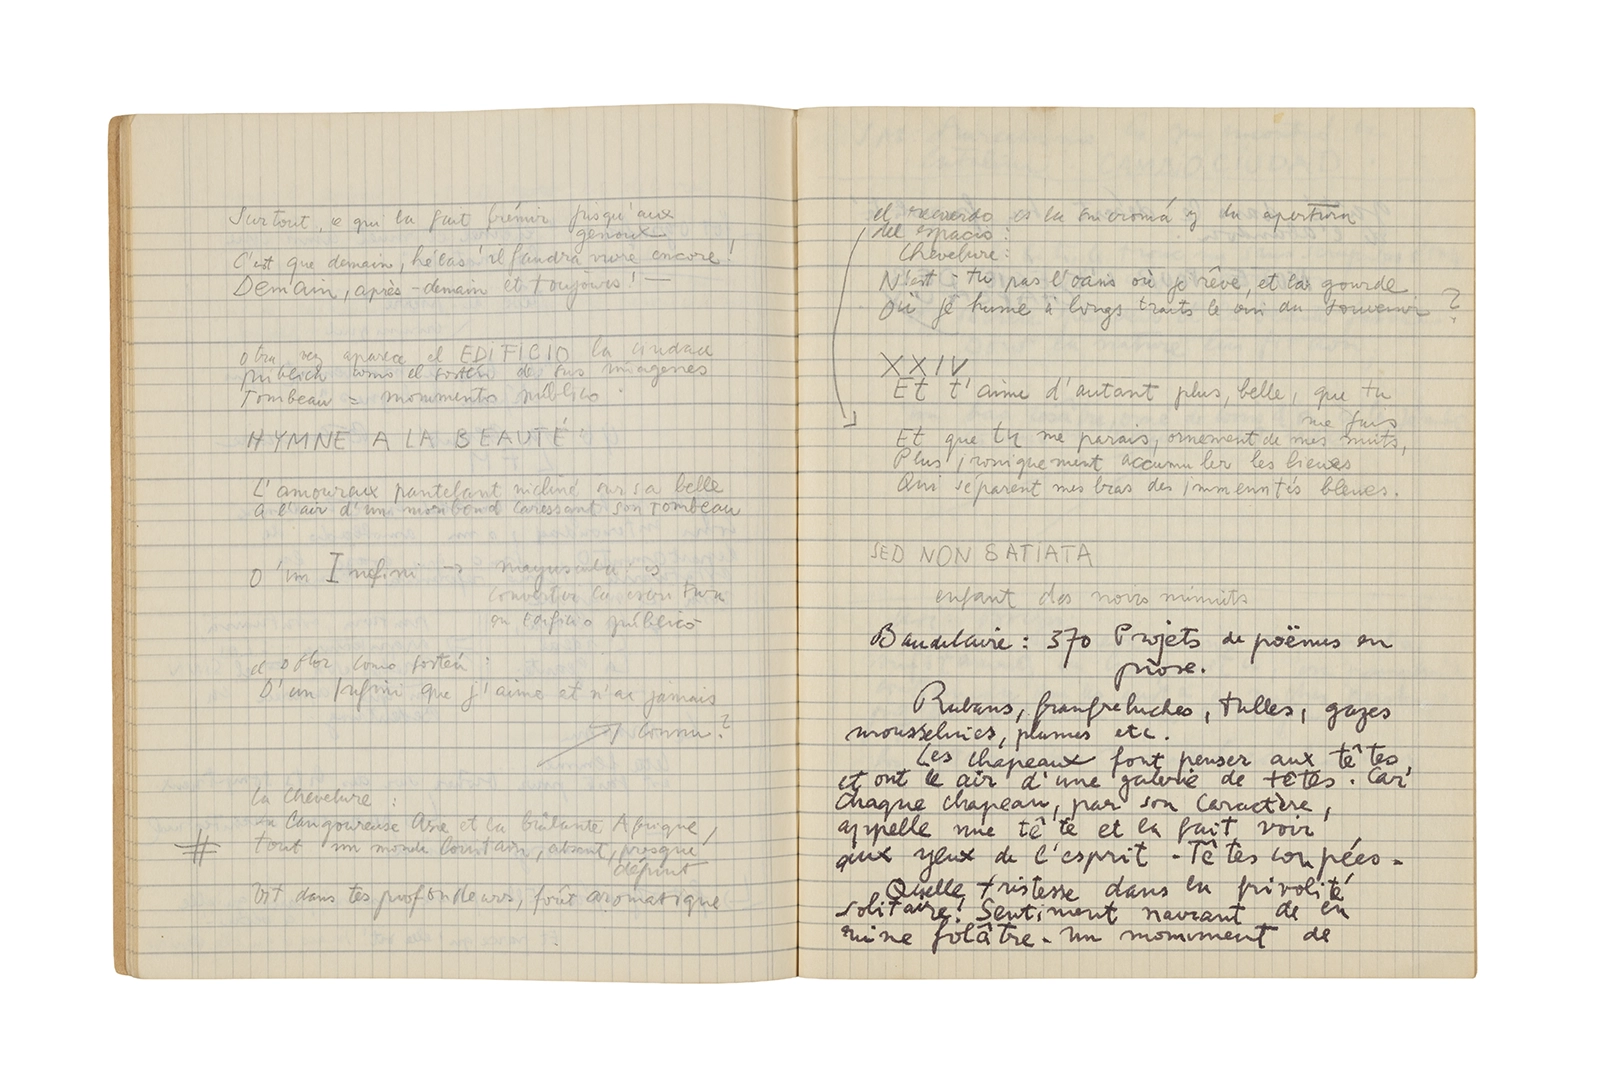 Surtout, ce qui la fait frémir jusqu'aux
genoux
C'est que demain, hélas! il faudra vivre encore!
Demain, après-demain et toujours! —
otra vez aparece el EDIFICIO la ciudad
pública como el sostén de sus imágenes
Tombeau = monumento público.
HYMNE A LA BEAUTÉ
L'amoureux pantelant incliné sur sa belle
a l'air d'un moribond caressant son tombeau
D'un Infini → mayuscula: es
convertir la escritura
en Edificio público
el olor como sostén:
D'un Infini que j'aime et n'ai jamais
connu?
La Chevelure:
La langoureuse Asie et la brûlante Afrique,
# Tout un monde lointain, absent, presque
défunt
Vit dans tes profondeurs, forêt aromatique
el recuerdo es la y la apertura
del espacio:
Chevelure:
N'est-tu pas l'oasis où je rêve, et la gourde
Où je hume à longs traits le vin du souvenir ?
XXIV
Et t'aime d'autant plus, belle, que tu
me fuis
Et que tu me parais, ornement de mes nuits,
Plus ironiquement accumuler les lieues
Qui séparent mes bras des immensités bleues.
SED NON SATIATA
enfant des noirs minuits
Baudelaire: 370 Projets de poëmes en
prose.
Rubans, franfreluches, tulles, gazes
mousselines, plumes etc.
Les chapeaux font penser aux têtes,
et ont le air d'une galerie de têtes. Car
chaque chapeau, par son caractère,
appelle une tête et la fait voir
aux yeux de l'esprit - Têtes coupées -
Quelle tristesse dans la frivolité
solitaire! Sentiment navrant de la
ruine folâtre - un monument de